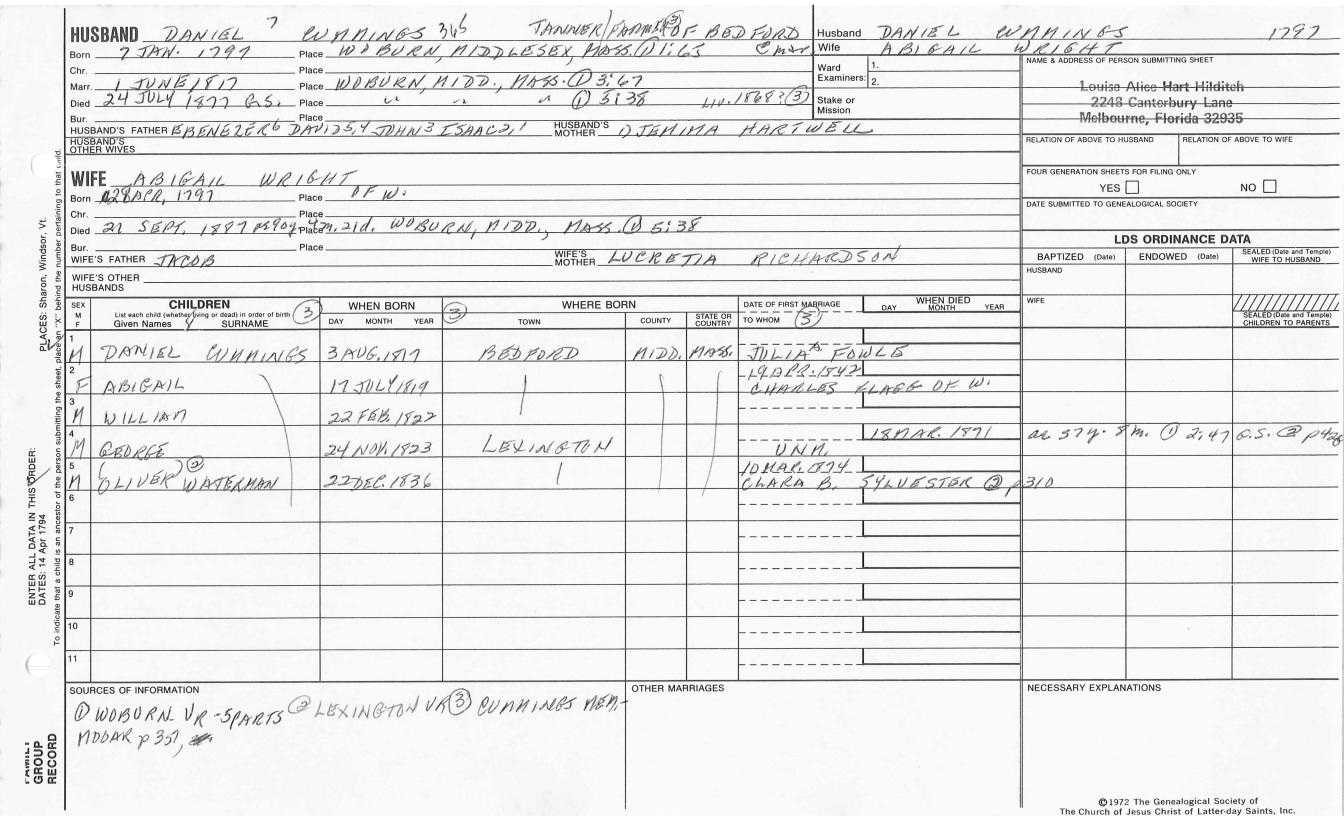 HUSBAND DANIEL 7 CUMMINGS 365 TANNER/FARMER (3) OF BEDFORD
Born 7 JAN. 1797 Place WOBURN, MIDDLESEX, MASS. (1) 1:63
Chr. Place
Marr. 1 JUNE 1817 Place WOBURN, MIDD., MASS. (1) 3:67
Died 24 JULY 1877 G.S. Place " " " (1) 5:38 LIV. 1868? (3)
Bur. Place
HUSBAND'S FATHER EBENEZER6 DAVID5,4 JOHN3 ISAAC2,1 HUSBAND'S MOTHER 1) JEMIMA HARTWELL
HUSBAND'S OTHER WIVES
Husband DANIEL CUMMINGS 1797
Wife ABIGAIL WRIGHT
Ward Examiners: 1.
2.
Stake or Mission
NAME & ADDRESS OF PERSON SUBMITTING SHEET
Louise Alice Hart Hilditch
2248 Canterbury Lane
Melbourne, Florida 32935
RELATION OF ABOVE TO HUSBAND RELATION OF ABOVE TO WIFE
FOUR GENERATION SHEETS FOR FILING ONLY
YES NO
DATE SUBMITTED TO GENEALOGICAL SOCIETY
WIFE ABIGAIL WRIGHT
Born 28 APR, 1797 Place OF W.
Chr. Place
Died 21 SEPT. 1887 Place 4m. 21d. WOBURN, MIDD., MASS. (1) 5:38
Bur. Place
WIFE'S FATHER JACOB WIFE'S MOTHER LUCRETIA RICHARDSON
WIFE'S OTHER HUSBANDS
LDS ORDINANCE DATA
BAPTIZED (Date) ENDOWED (Date) SEALED (Date and Temple) WIFE TO HUSBAND
HUSBAND
WIFE
SEALED (Date and Temple) CHILDREN TO PARENTS
SEX M F CHILDREN (3) WHEN BORN (3) WHERE BORN DATE OF FIRST MARRIAGE WHEN DIED
List each child (whether living or dead) in order of birth
Given Names SURNAME DAY MONTH YEAR TOWN COUNTY STATE OR COUNTRY TO WHOM (3) DAY MONTH YEAR
1 M DANIEL CUMMINGS 3 AUG. 1817 BEDFORD MIDD. MASS. JULIA A FOWLE
2 19 APR. 1842
F ABIGAIL 17 JULY 1819 CHARLES FLAGG OF W.
3 M WILLIAM 22 FEB. 1822
4 18 MAR. 1871 ae 57y. 8m. (1) 2:47 G.S. (2)
M GEORGE 24 NOV. 1823 LEXINGTON UNM.
5 (2) 10 MAR. 1874
M (OLIVER) WATERMAN 22 DEC. 1836 CLARA B. SYLVESTER (2) p310
6
7
8
9
10
11
SOURCES OF INFORMATION
(1) WOBURN VR - 5 PARTS (2) LEXINGTON VR (3) CUMMINGS MEM.-
p 357,
OTHER MARRIAGES
NECESSARY EXPLANATIONS
©1972 The Genealogical Society of
The Church of Jesus Christ of Latter-day Saints, Inc.
PLACES: Sharon, Windsor, Vt.
ENTER ALL DATA IN THIS ORDER:
DATES: 14 Apr 1794
To indicate that a child is an ancestor of the person submitting the sheet, place an "X" behind the number pertaining to that child.
FAMILY GROUP RECORD